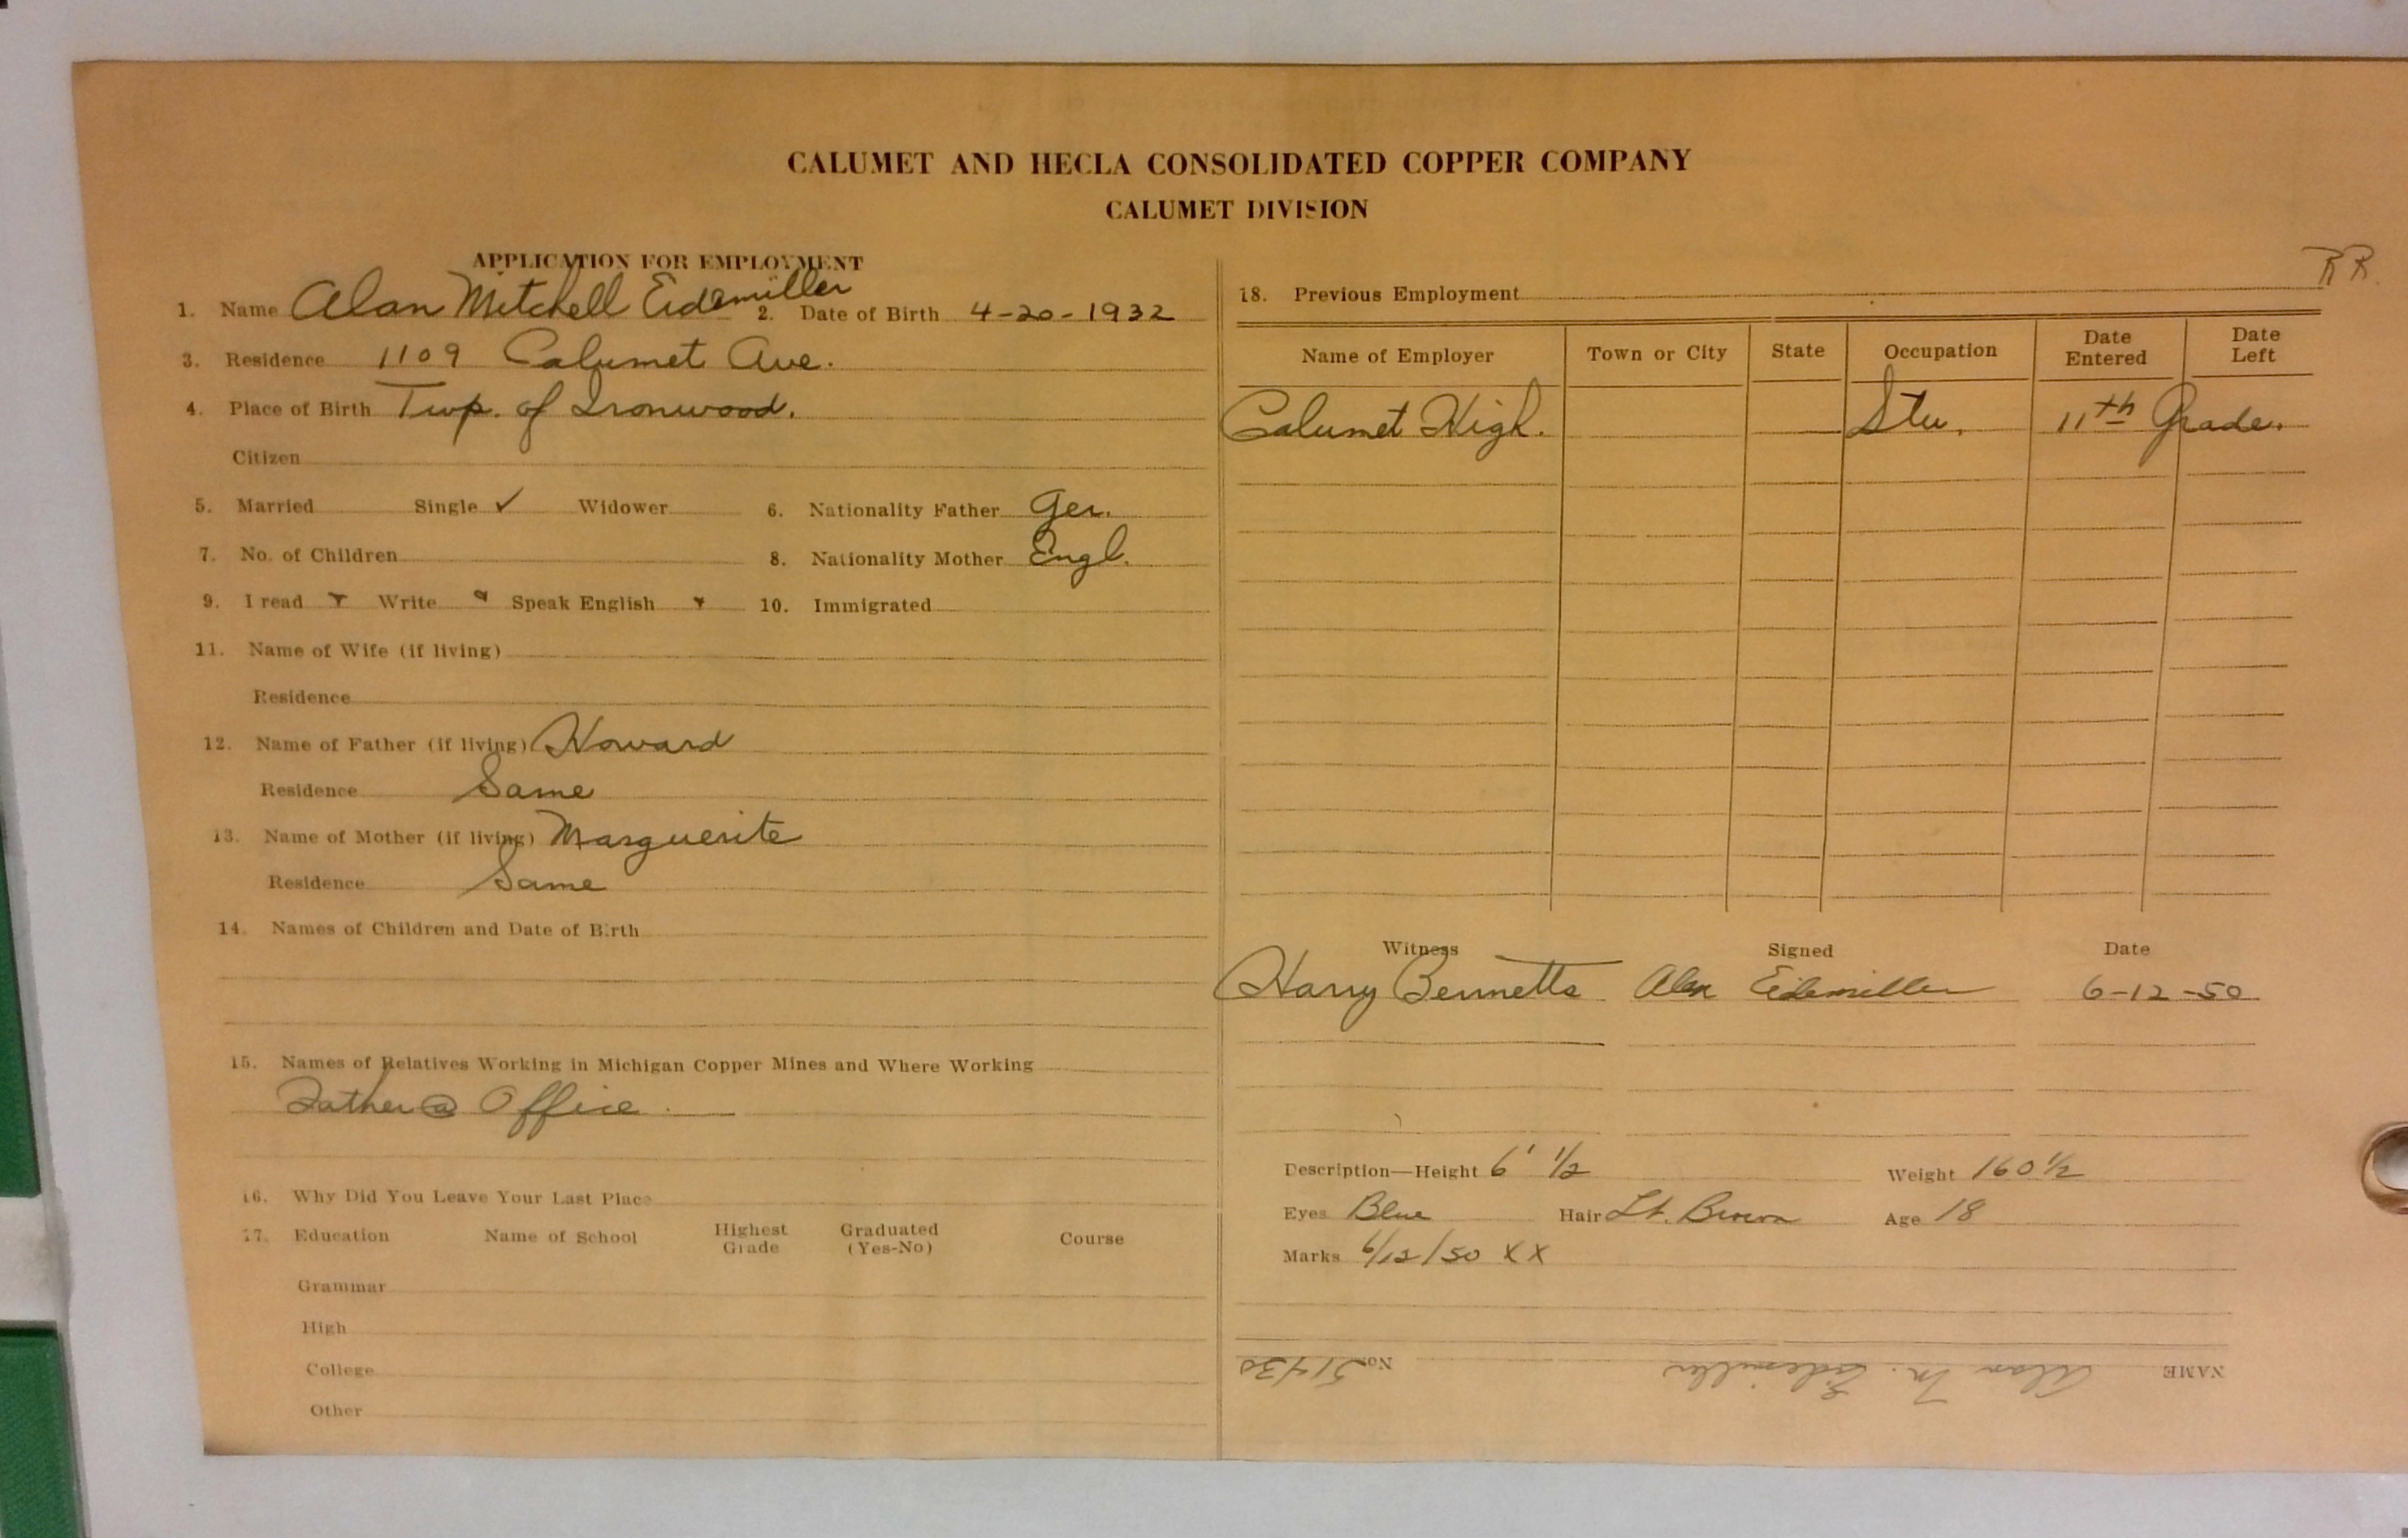 CALUMET AND HECLA CONSOLIDATED COPPER COMPANY
CALUMET DIVISION
APPLICATION FOR EMPLOYMENT
1. Name Alan Mitchell Eidemiller 2. Date of Birth 4-20-1932
3. Residence 1109 Calumet Ave.
4. Place of Birth Twp. of Ironwood.
Citizen
5. Married Single ✓ Widower 6. Nationality Father Ger.
7. No. of Children 8. Nationality Mother Engl.
9. I read Write Speak English 10. Immigrated
11. Name of Wife (if living)
Residence
12. Name of Father (if living) Howard
Residence Same
13. Name of Mother (if living) Marguerite
Residence Same
14. Names of Children and Date of Birth
15. Names of Relatives Working in Michigan Copper Mines and Where Working
Father @ Office.
16. Why Did You Leave Your Last Place
17. Education Name of School Highest Grade Graduated (Yes-No) Course
Grammar
High
College
Other
RR.
18. Previous Employment
Name of Employer Town or City State Occupation Date Entered Date Left
Calumet High. Stu. 11th Grade.
Witness Signed Date
Harry Bennetts Alan Eidemiller 6-12-50
Description—Height 6' 1/2 Weight 160 1/2
Eyes Blue Hair Lt. Brown Age 18
Marks 6/12/50 XX
NAME Alan M. Eidemiller No. 51430